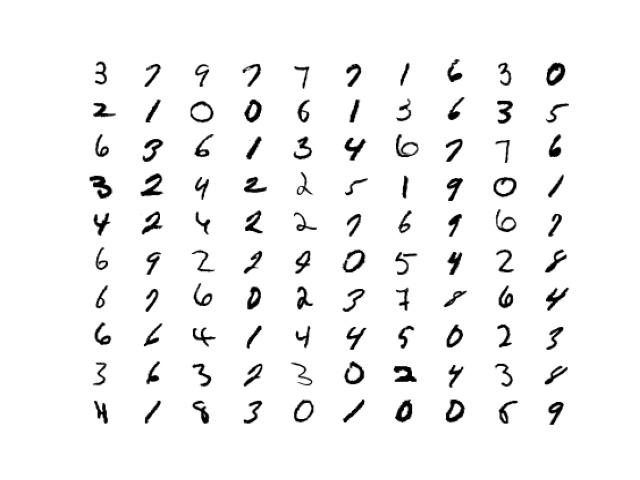 3 7 9 7 7 7 1 6 3 0
2 1 0 0 6 1 3 6 3 5
6 3 6 1 3 4 6 7 7 6
3 2 4 2 2 5 1 9 0 1
4 2 4 2 2 7 6 9 6 7
6 9 2 2 4 0 5 4 2 8
6 7 6 0 2 3 7 8 6 4
6 6 4 1 4 4 5 0 2 3
3 6 3 2 3 0 2 4 3 8
4 1 8 3 0 1 0 0 9